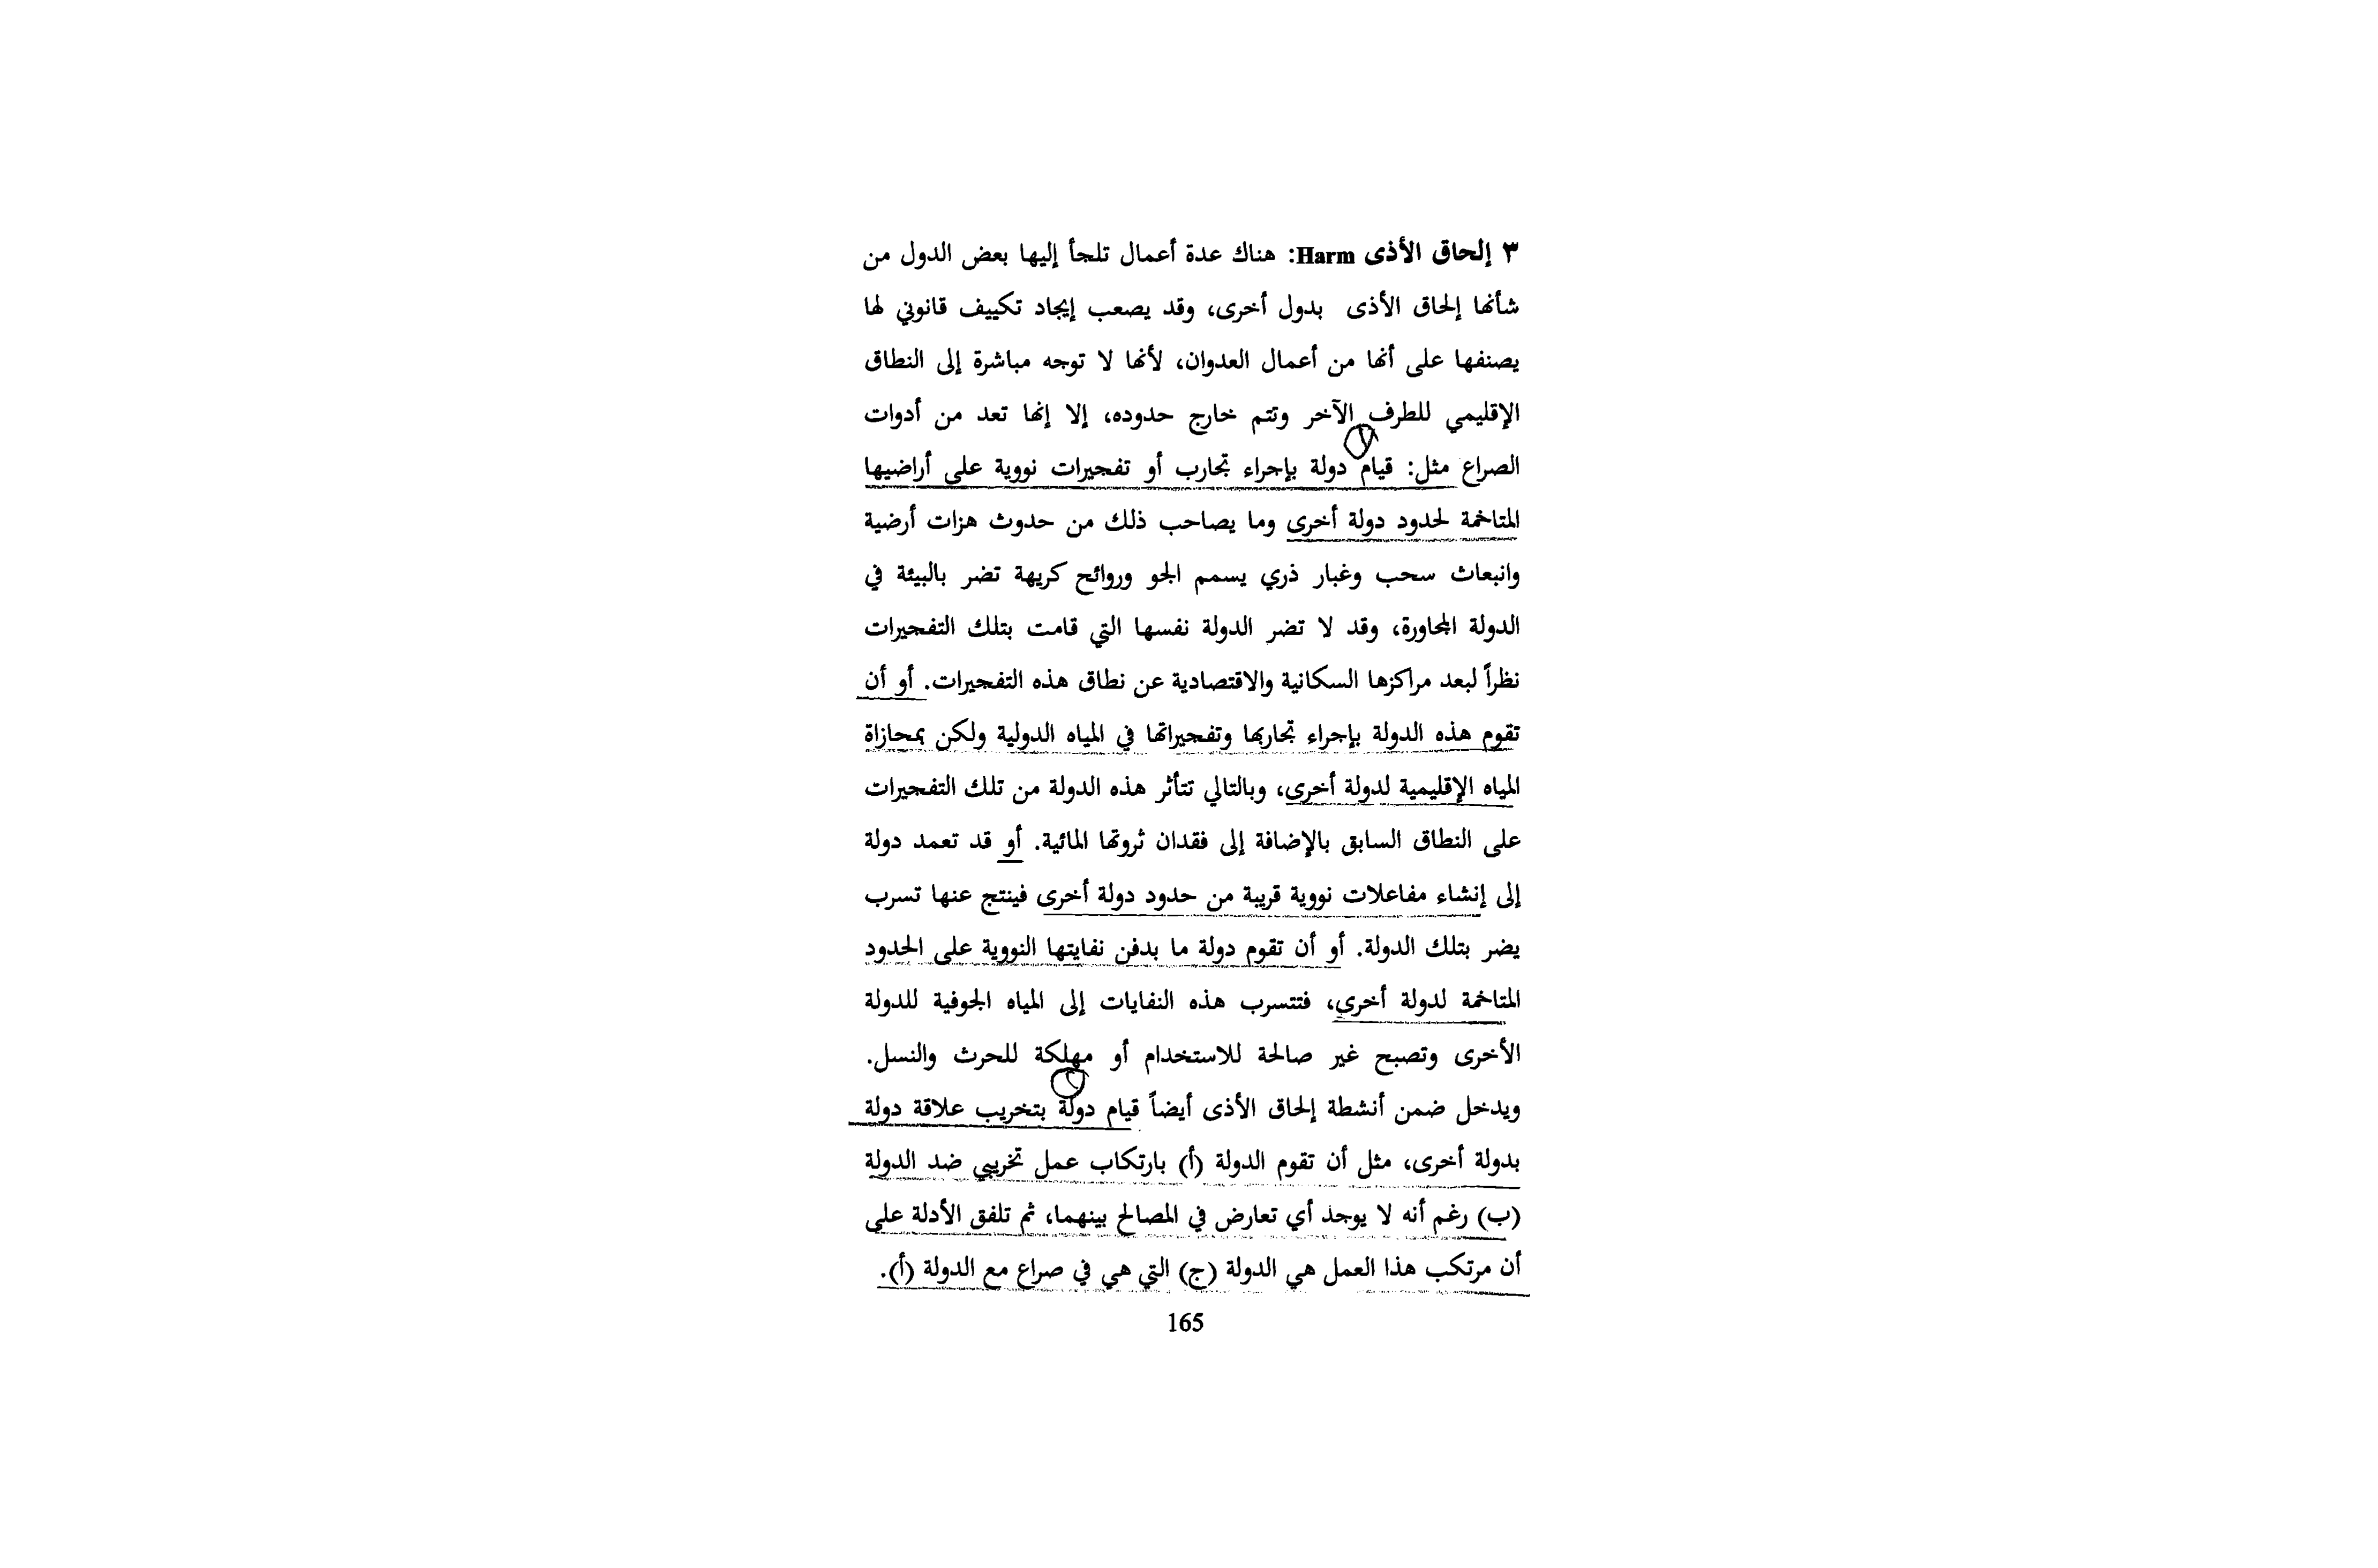 ٣ إلحاق الأذى Harm: هناك عدة أعمال تلجأ إليها بعض الدول من
شأنها إلحاق الأذى بدول أخرى، وقد يصعب إيجاد تكييف قانوني لها
يصنفها على أنها من أعمال العدوان، لأنها لا توجه مباشرة إلى النطاق
الإقليمي للطرف الآخر وتتم خارج حدوده، إلا إنها تعد من أدوات
الصراع مثل: قيام دولة بإجراء تجارب أو تفجيرات نووية على أراضيها
المتاخمة لحدود دولة أخرى وما يصاحب ذلك من حدوث هزات أرضية
وانبعاث سحب وغبار ذري يسمم الجو وروائح كريهة تضر بالبيئة في
الدولة المجاورة، وقد لا تضر الدولة نفسها التي قامت بتلك التفجيرات
نظراً لبعد مراكزها السكانية والاقتصادية عن نطاق هذه التفجيرات. أو أن
تقوم هذه الدولة بإجراء تجاربها وتفجيراتها في المياه الدولية ولكن بمحازاة
المياه الإقليمية لدولة أخرى، وبالتالي تتأثر هذه الدولة من تلك التفجيرات
على النطاق السابق بالإضافة إلى فقدان ثروتها المائية. أو قد تعمد دولة
إلى إنشاء مفاعلات نووية قريبة من حدود دولة أخرى فينتج عنها تسرب
يضر بتلك الدولة. أو أن تقوم دولة ما بدفن نفايتها النووية على الحدود
المتاخمة لدولة أخرى، فتتسرب هذه النفايات إلى المياه الجوفية للدولة
الأخرى وتصبح غير صالحة للاستخدام أو مهلكة للحرث والنسل.
ويدخل ضمن أنشطة إلحاق الأذى أيضاً قيام دولة بتخريب علاقة دولة
بدولة أخرى، مثل أن تقوم الدولة (أ) بارتكاب عمل تخريبي ضد الدولة
(ب) رغم أنه لا يوجد أي تعارض في المصالح بينهما، ثم تلفق الأدلة على
أن مرتكب هذا العمل هي الدولة (ج) التي هي في صراع مع الدولة (أ).
165